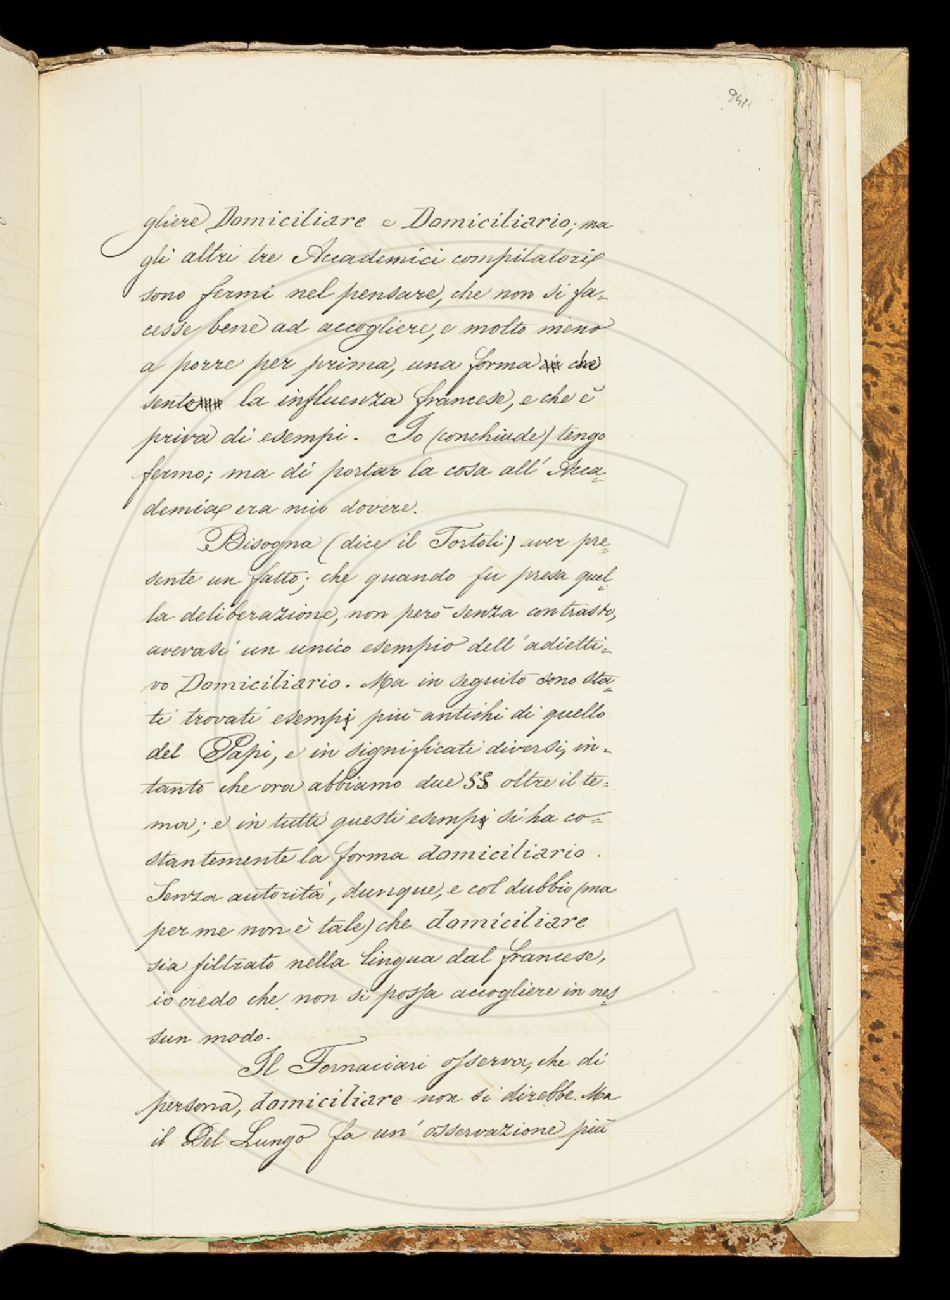 gliere Domiciliare e Domiciliario; ma
gli altri tre Accademici compilatori
sono fermi nel pensare, che non si fa-
cesse bene ad accogliere, e molto meno
a porre per prima, una forma che
sente la influenza francese, e che è
priva di esempi. Io (conchiude) tengo
fermo; ma di portar la cosa all' Acca-
demia era mio dovere.
Bisogna (dice il Tortoli) aver pre-
sente un fatto; che quando fu presa quel-
la deliberazione, non però senza contrasto,
avevasi un unico esempio dell' adietti-
vo Domiciliario. Ma in seguito sono sta-
ti trovati esempj più antichi di quello
del Papi, e in significati diversi, in-
tanto che ora abbiamo due §§ oltre il te-
ma; e in tutti questi esempj si ha co-
stantemente la forma domiciliario.
Senza autorità, dunque, e col dubbio (ma
per me non è tale) che domiciliare
sia filtrato nella lingua dal francese,
io credo che non si possa accogliere in nes
sun modo.
Il Fornaciari osserva, che di
persona, domiciliare non si direbbe. Ma
il Del Lungo fa un' osservazione più